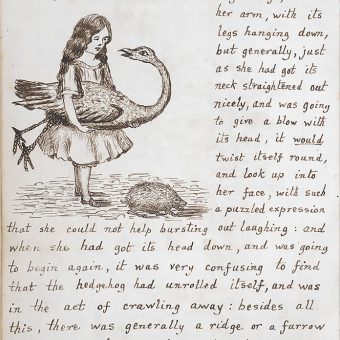 her arm, with its
legs hanging down,
but generally, just
as she had got its
neck straightened out
nicely, and was going
to give a blow with
its head, it would
twist itself round,
and look up into
her face, with such
a puzzled expression
that she could not help bursting out laughing: and
when she had got its head down, and was going
to begin again, it was very confusing to find
that the hedgehog had unrolled itself, and was
in the act of crawling away: besides all
this, there was generally a ridge or a furrow